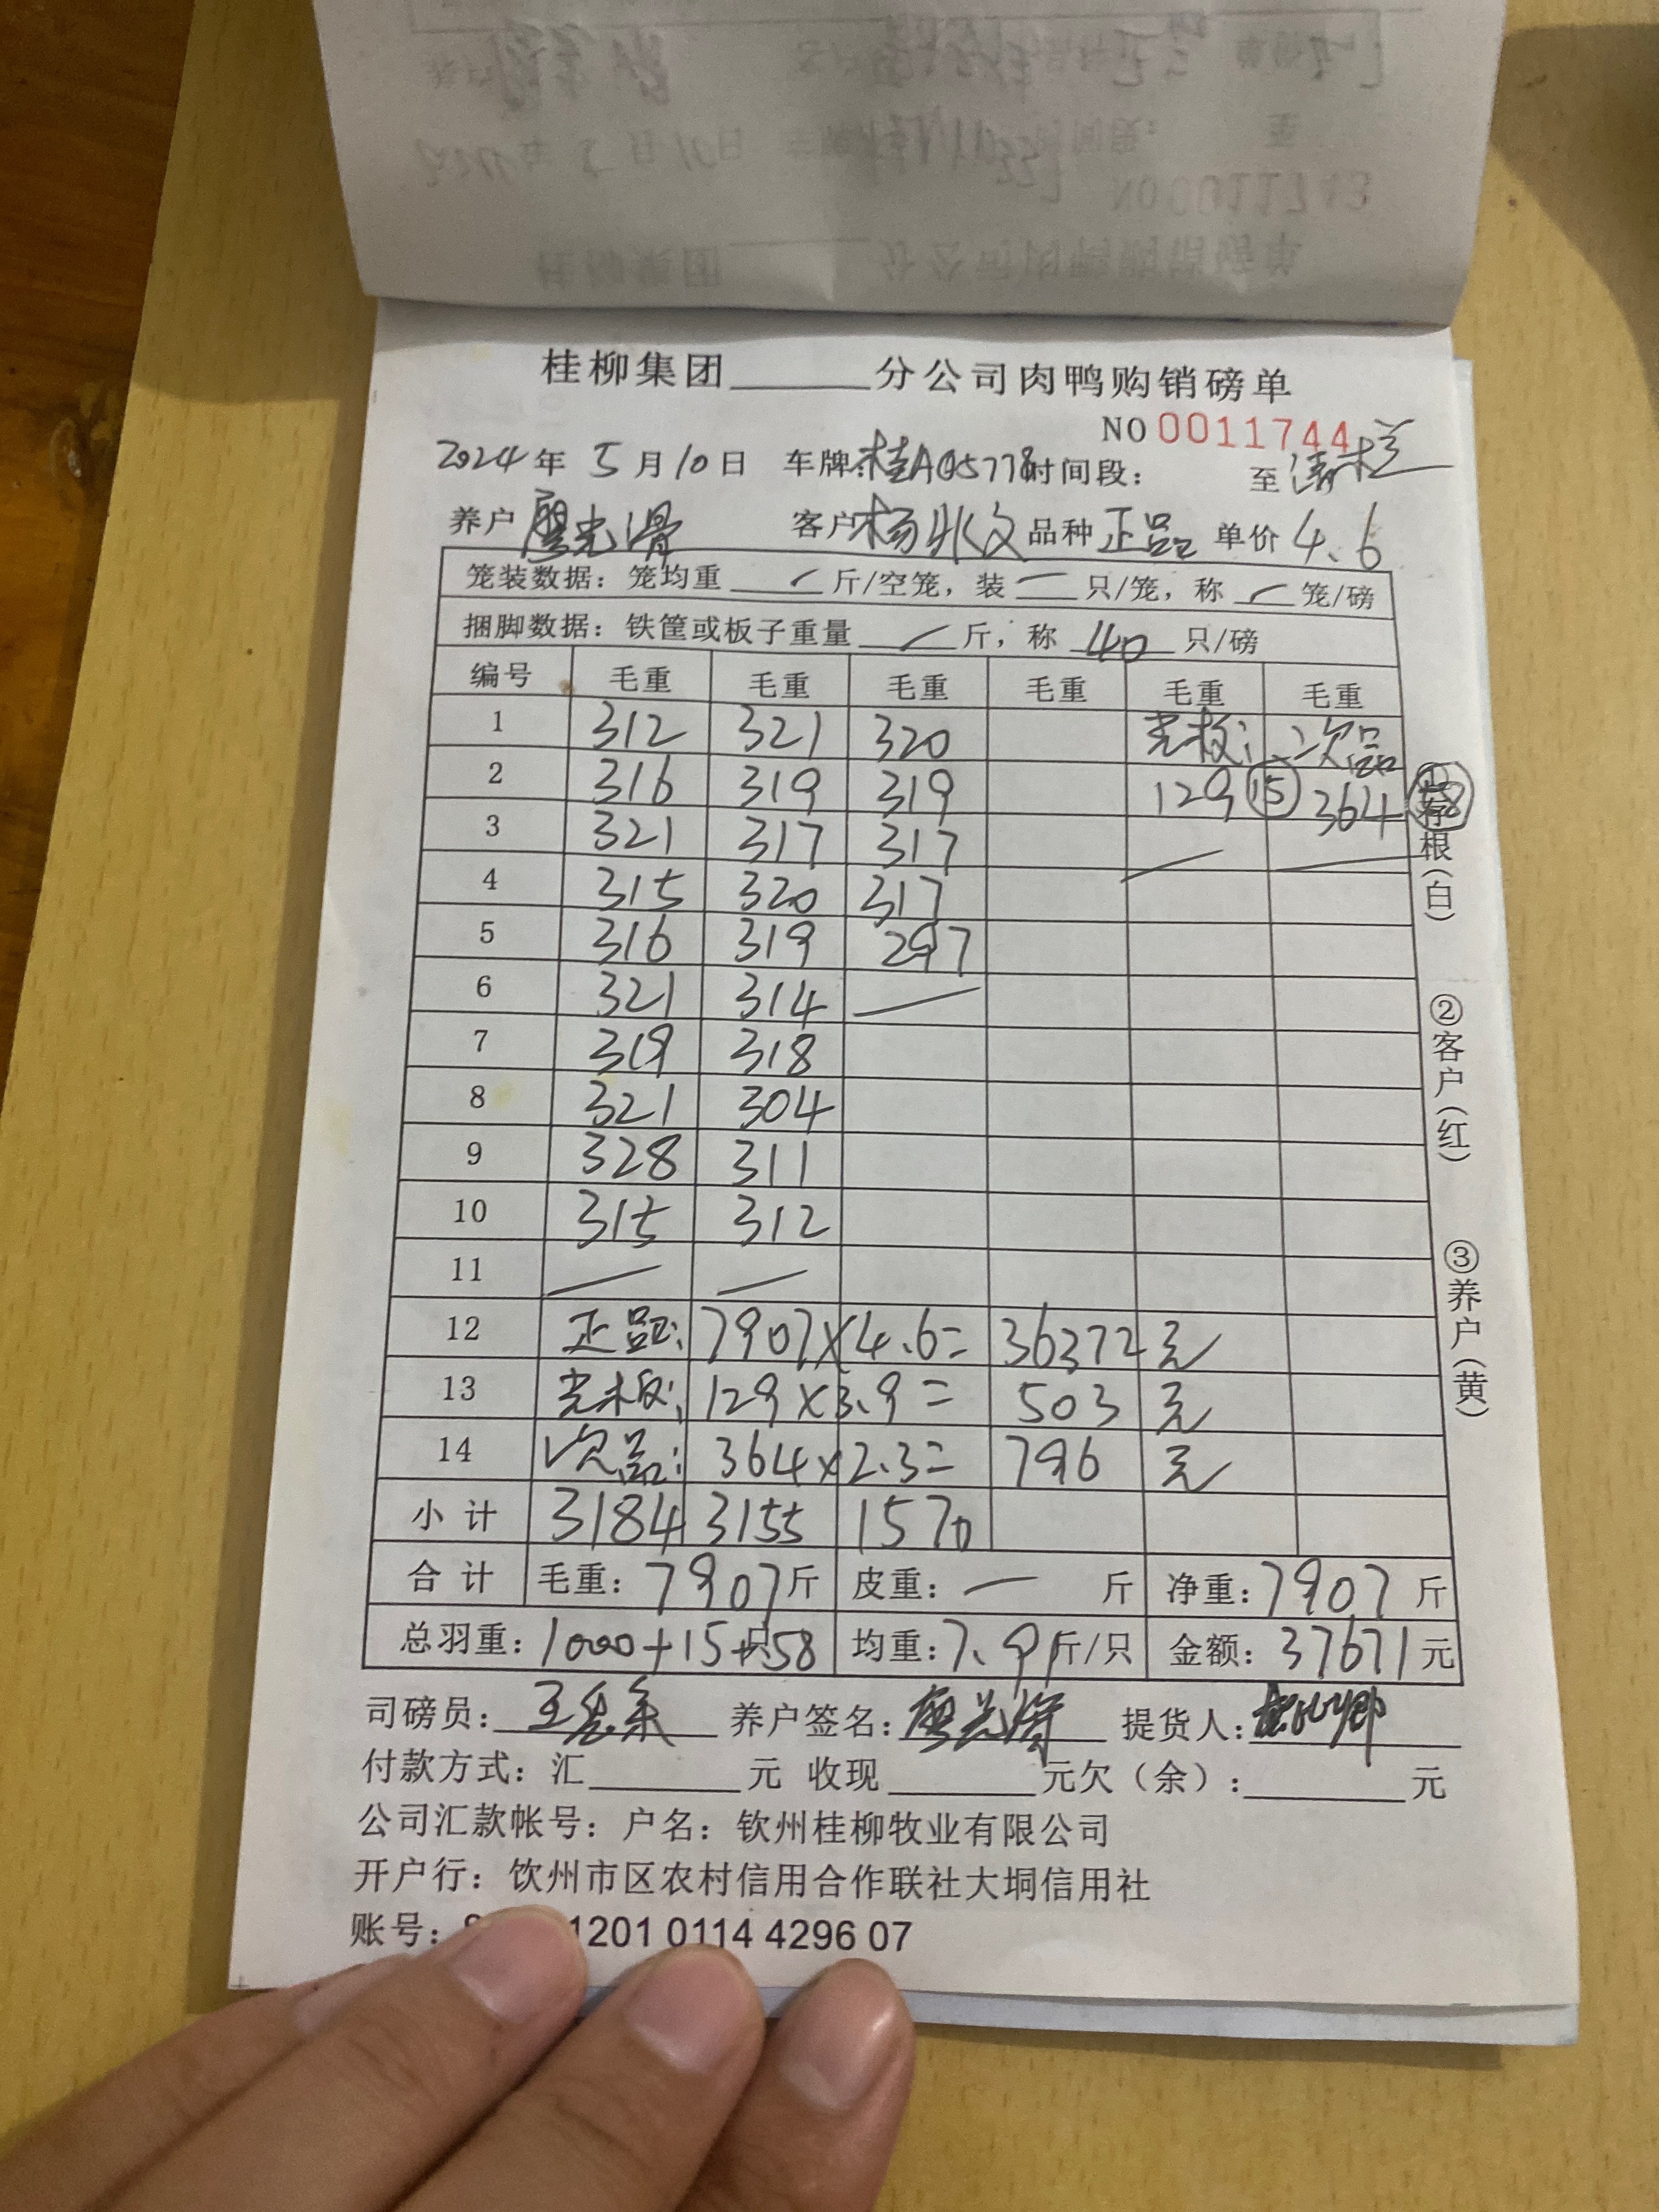 桂柳集团______分公司肉鸭购销磅单
NO 0011744
2024年 5月10日 车牌:桂A05778 时间段: 至 清栏
养户 客户 杨 文 品种 正品 单价 4.6
笼装数据:笼均重 / 斤/空笼,装 一 只/笼,称 / 笼/磅
捆脚数据:铁筐或板子重量 / 斤,称 40 只/磅
编号 毛重 毛重 毛重 毛重 毛重 毛重
1 312 321 320 光板: 次品
2 316 319 319 129 ⑮ 364 58
3 321 317 317
4 315 320 317
5 316 319 297
6 321 314
7 319 318
8 321 304
9 328 311
10 315 312
11
12 正品: 7907×4.6= 36372 元
13 光板: 129×3.9= 503 元
14 次品: 364×2.3= 796 元
小计 3184 3155 1570
合计 毛重:7907斤 皮重:一 斤 净重:7907 斤
总羽重:1000+15+58 只 均重:7.9斤/只 金额:37671元
司磅员: 养户签名: 提货人:
付款方式:汇______元 收现______元欠(余):______元
公司汇款帐号:户名:钦州桂柳牧业有限公司
开户行:饮州市区农村信用合作联社大垌信用社
账号: 1201 0114 4296 07
①存根(白)
②客户(红)
③养户(黄)